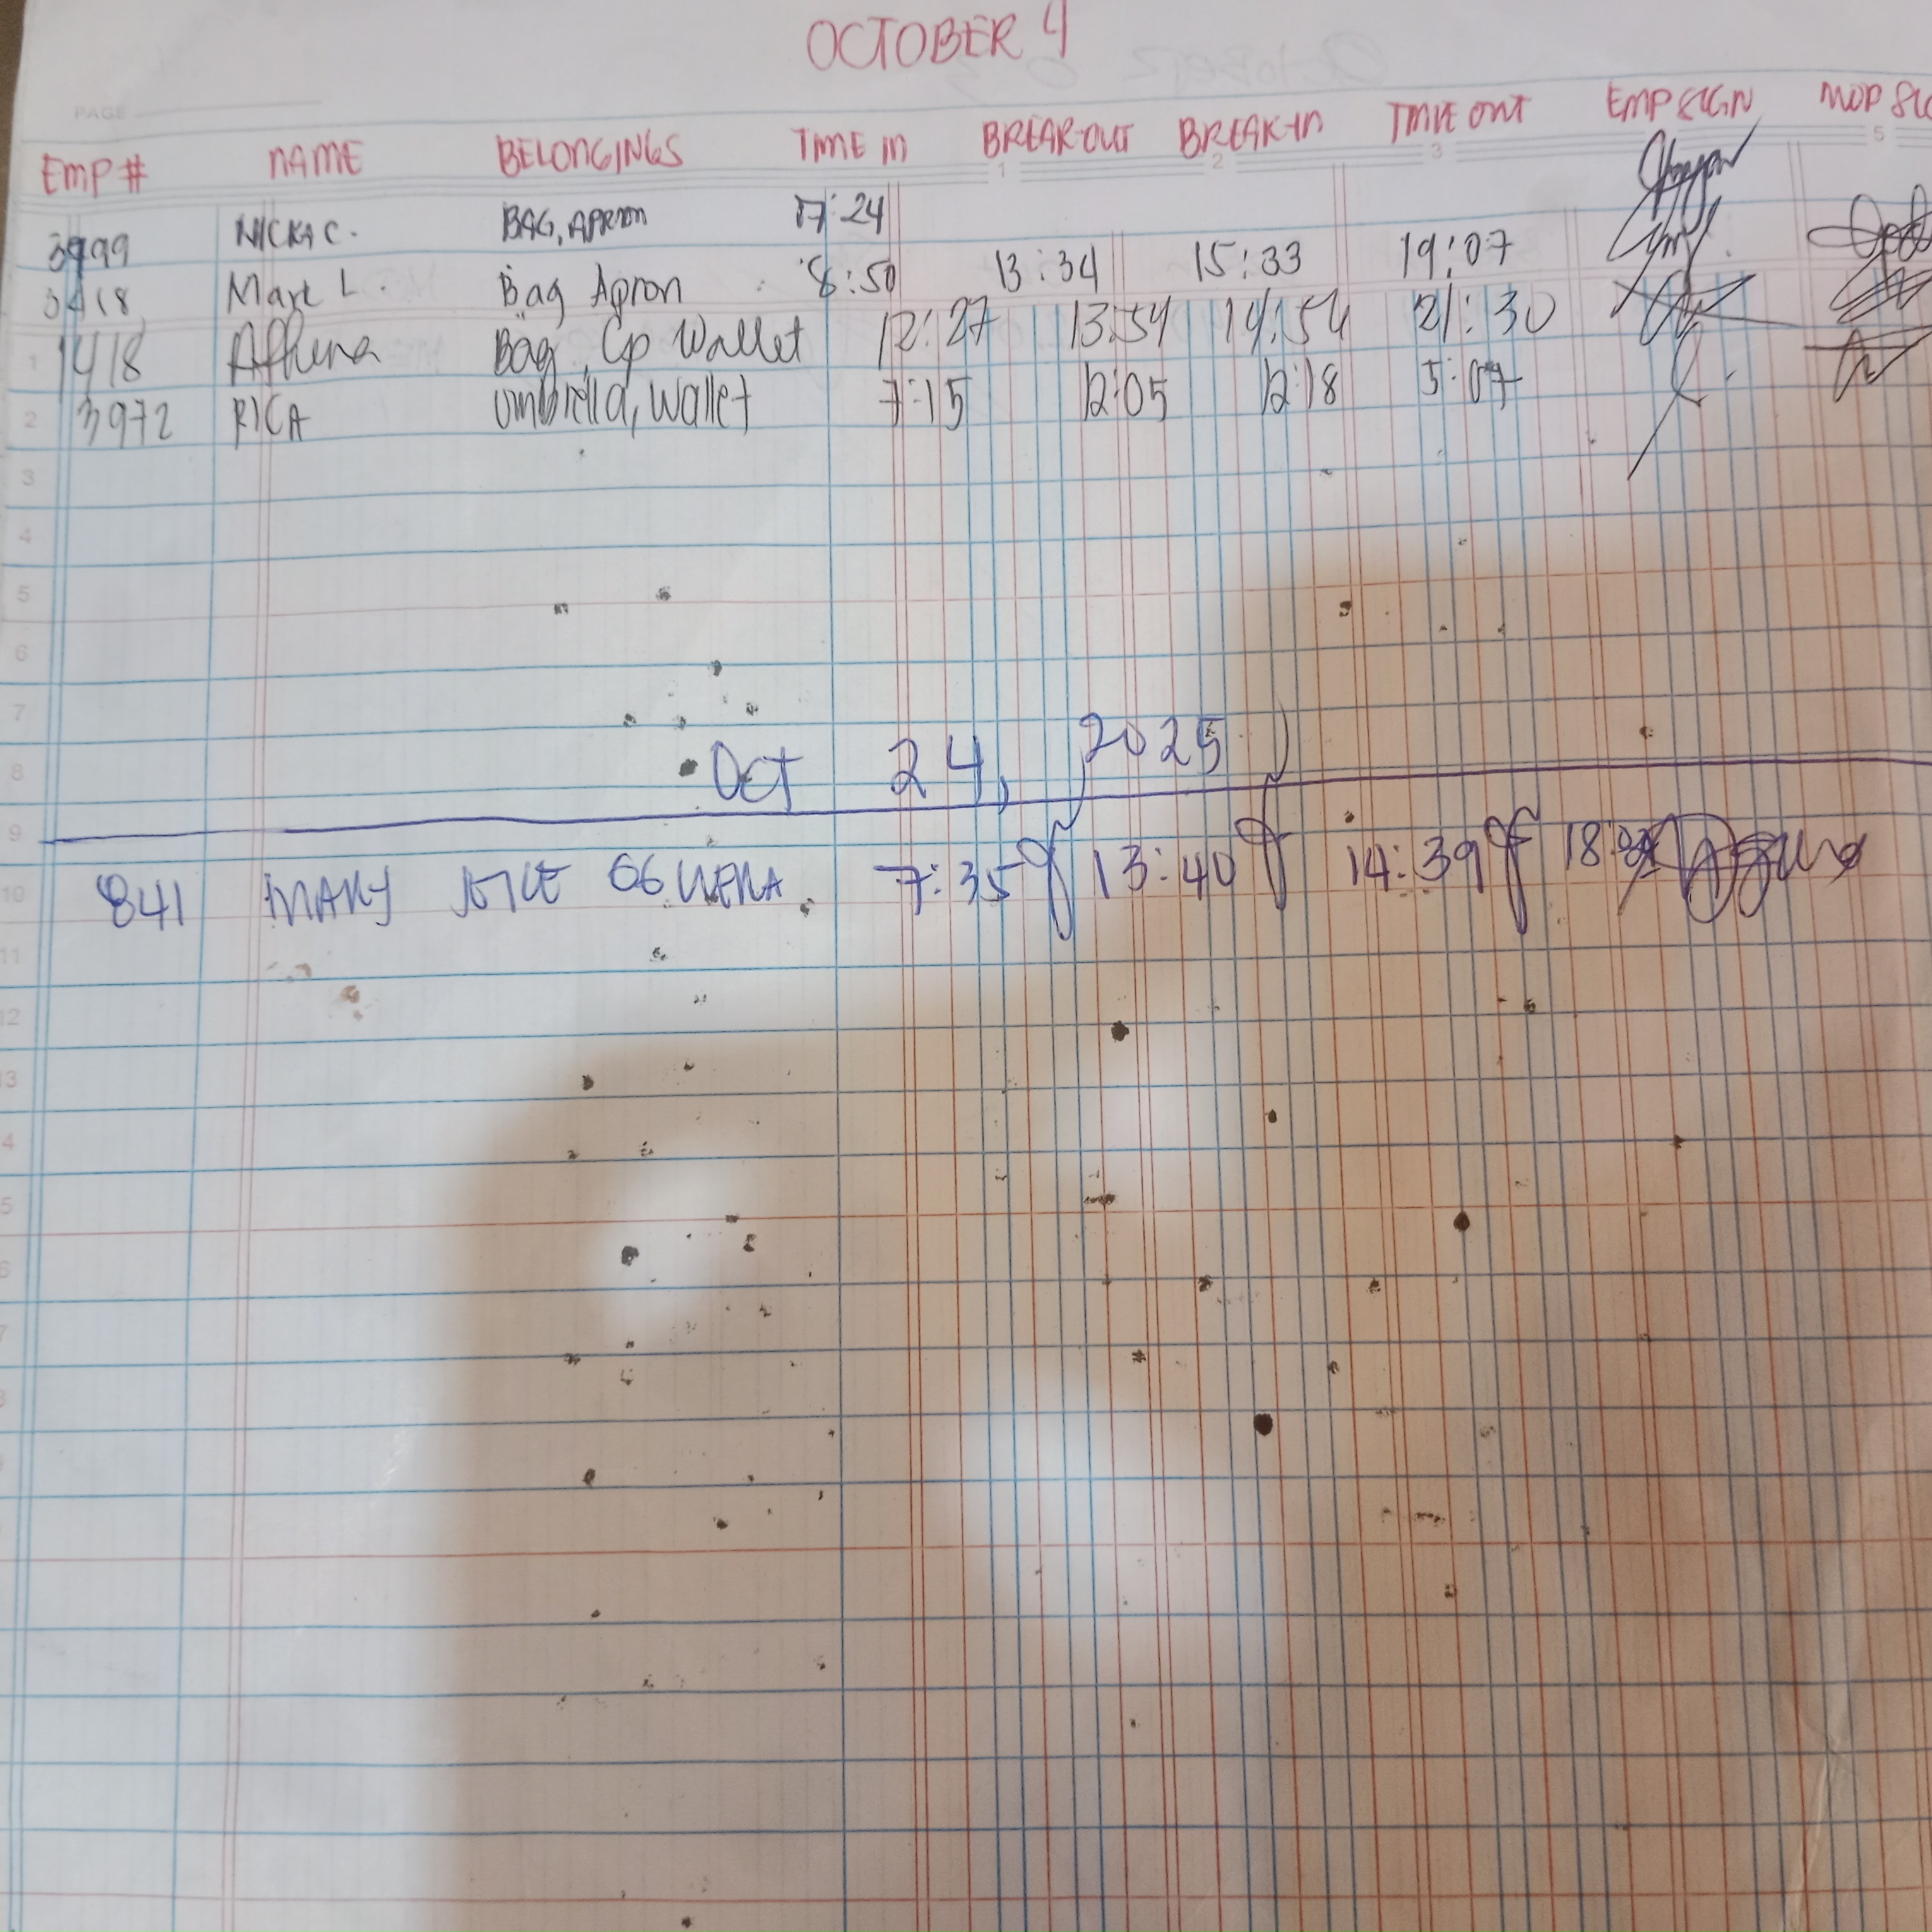 OCTOBER 4
PAGE
EMP # NAME BELONGINGS TIME IN BREAK-OUT BREAK-IN TIME OUT EMP SIGN MOD
1 2 3 5
3999 NICKA C. BAG, APRON 7:24
3418 Mark L. Bag Apron 8:50 13:34 15:33 19:07
1 1418 Athena Bag, Cp Wallet 12:27 13:54 14:54 21:30
2 3972 RICA Umbrella, Wallet 7:15 12:05 12:18 5:07
3
4
5
6
7
8 Oct 24, 2025
9
10 841 MARY 7:35 13:40 14:39
11
12